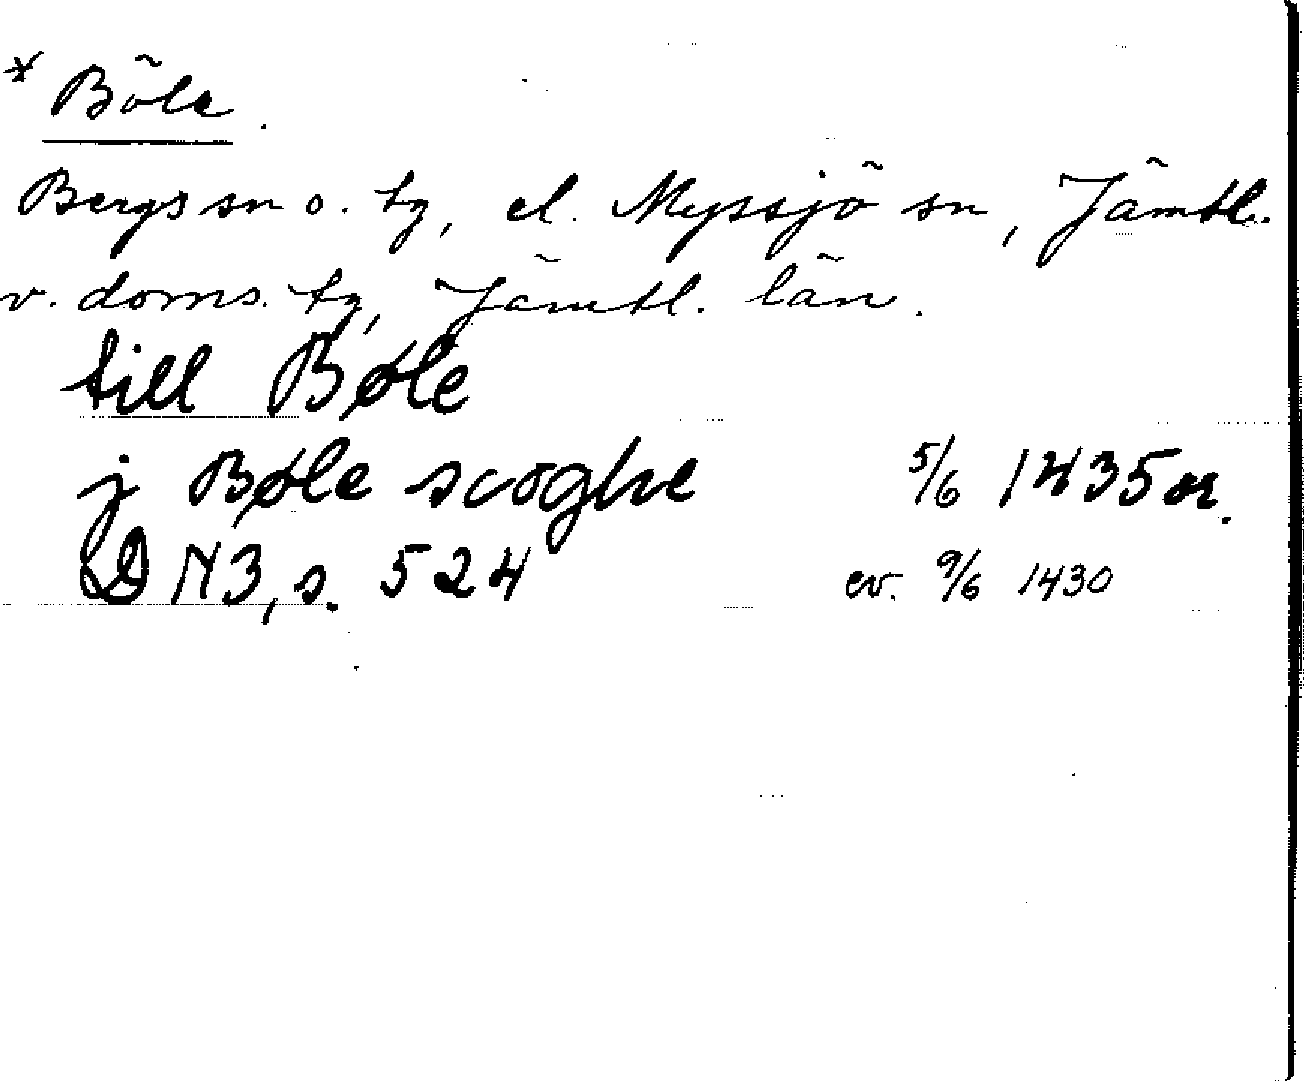 * Böle.
Bergs sn o. tg, el. Myssjö sn, Jämtl.
v. doms. tg, Jämtl. län.
till Bøle
j Bøle scoghe 5/6 1435 or.
DN 3, s. 524 ev. 9/6 1430